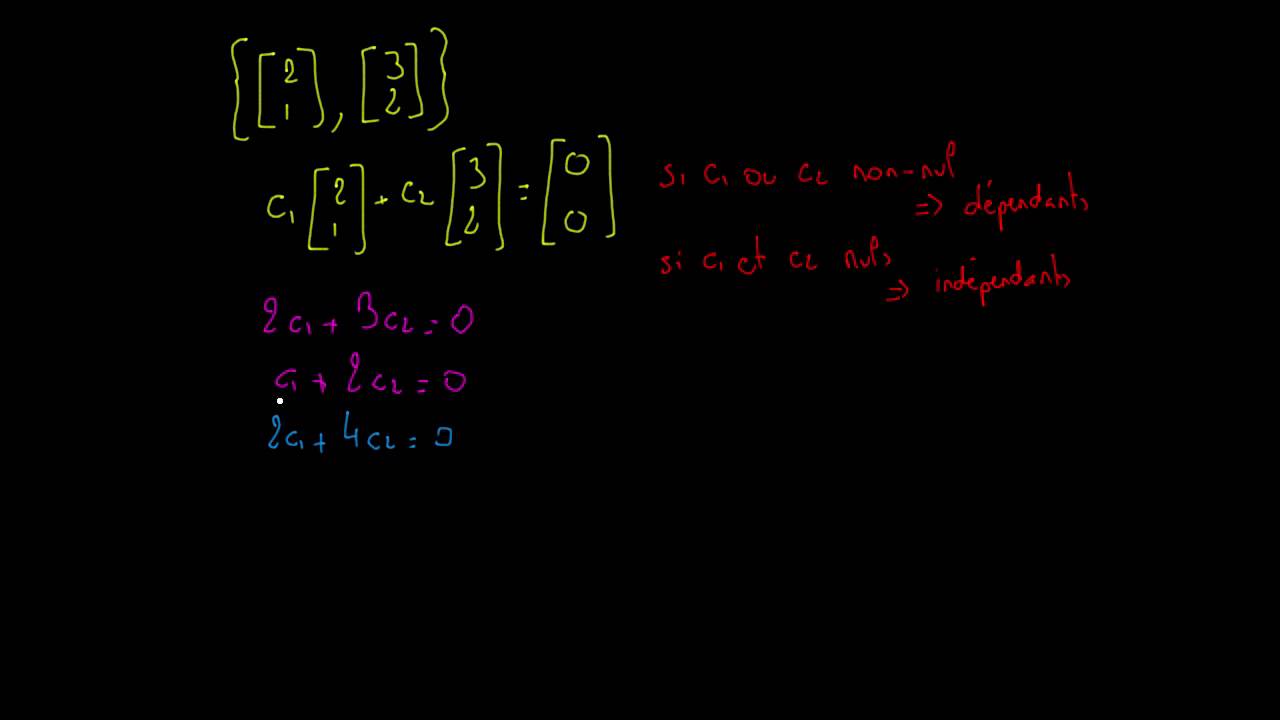 {[2 1], [3 2]}
c₁ [2 1] + c₂ [3 2] = [0 0]
si c₁ ou c₂ non-nul
=> dépendants
si c₁ et c₂ nuls
=> indépendants
2c₁ + 3c₂ = 0
c₁ + 2c₂ = 0
2c₁ + 4c₂ = 0